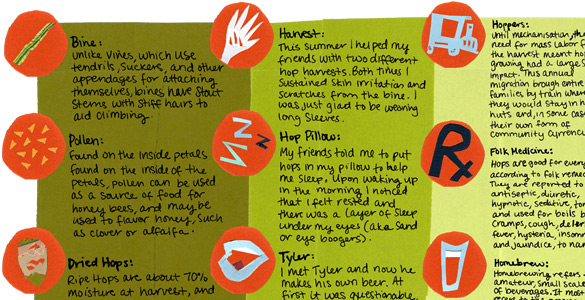 Bine:
Unlike Vines, which use
tendrils, suckers, and other
appendages for attaching
themselves, bines have stout
stems with stiff hairs to
aid climbing.
Pollen:
found on the inside petals
found on the inside of the
petals, pollen can be used
as a source of food for
honey bees, and may be
used to flavor honey, such
as clover or alfalfa.
Dried Hops:
Ripe Hops are about 70%
moisture at harvest, and
Harvest:
This summer I helped my
friends with two different
hop harvests. Both times I
sustained skin irritation and
scratches from the bine. I
was just glad to be wearing
long sleeves.
NZZ
Hop Pillow:
My friends told me to put
hops in my pillow to help
me sleep. Upon waking up
in the morning I noticed
that I felt rested and
there was a layer of sleep
under my eyes (aka Sand
or eye boogers).
Tyler:
I met Tyler and now he
makes his own beer. At
first it was questionable,
Hoppers:
Until mechanisation, the
need for mass labor
the harvest meant ho
growing had a large s
impact. This annual
migration brough entire
families by train where
they would stay in h
huts and, in some cas
their own form of
community currenc
Rx
Folk Medicine:
Hops are good for every
according to folk reme
They are reported to
antiseptic, diuretic,
hypnotic, sedative, to
and used for boils b
cramps, cough,
fever, hysteria, insom
and jaundice, to na
Homebrew:
Homebrewing refers
amateur, small scal
of beverages. It